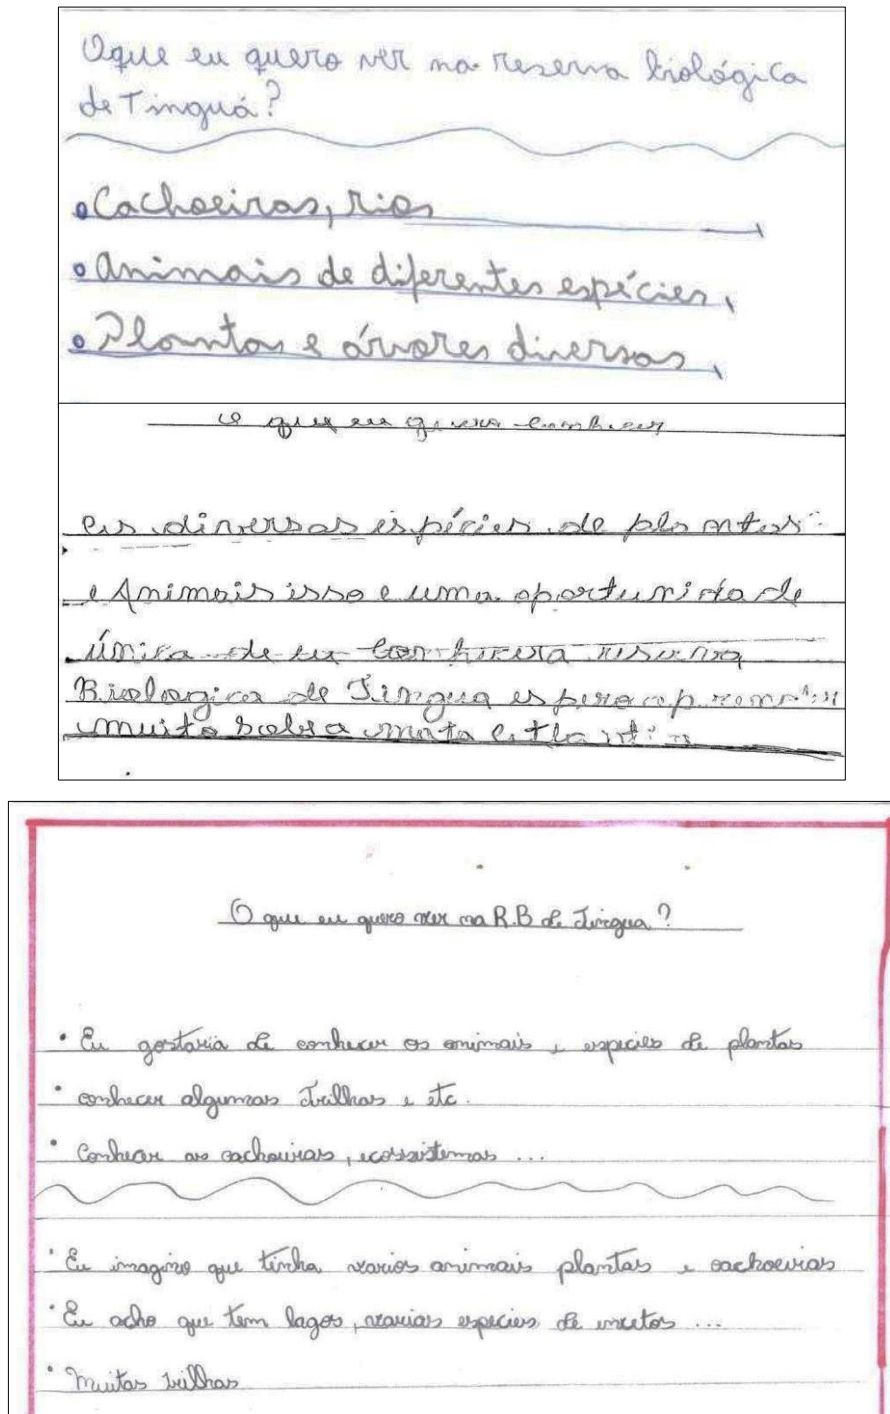 Oque eu quero ver na reserva biológica
de Tinguá?
Cachoeiras, rios
Animais de diferentes espécies,
Plantas e árvores diversas,
o que eu quero conhecer
as diversas espécies de plantas
e Animais isso e uma oportunidade
única de eu conhecer a reserva
Biologica de Tingua espero aprender
muito sobre a mata atlantica
O que eu quero ver na R.B de Tingua?
• Eu gostaria de conhecer os animais, especies de plantas
• conhecer algumas trilhas e etc.
• Conhecer as cachoeiras, ecossistemas ...
• Eu imagino que tinha varios animais plantas e cachoeiras
• Eu acho que tem lagos, varias especies de insetos ...
• Muitas trilhas